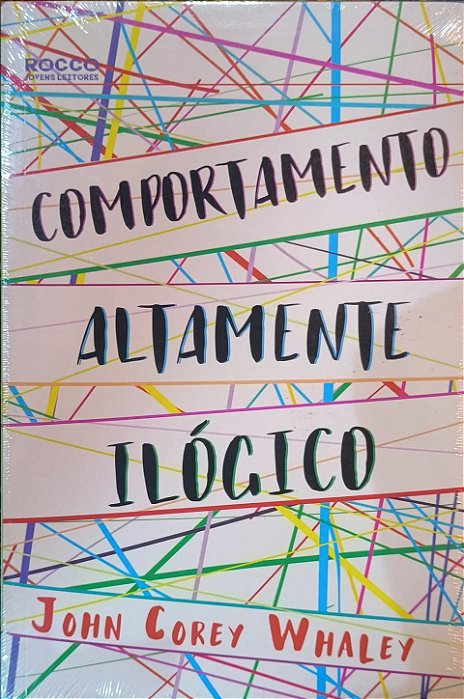 ROCCO
JOVENS LEITORES
COMPORTAMENTO
ALTAMENTE
ILÓGICO
JOHN COREY WHALEY